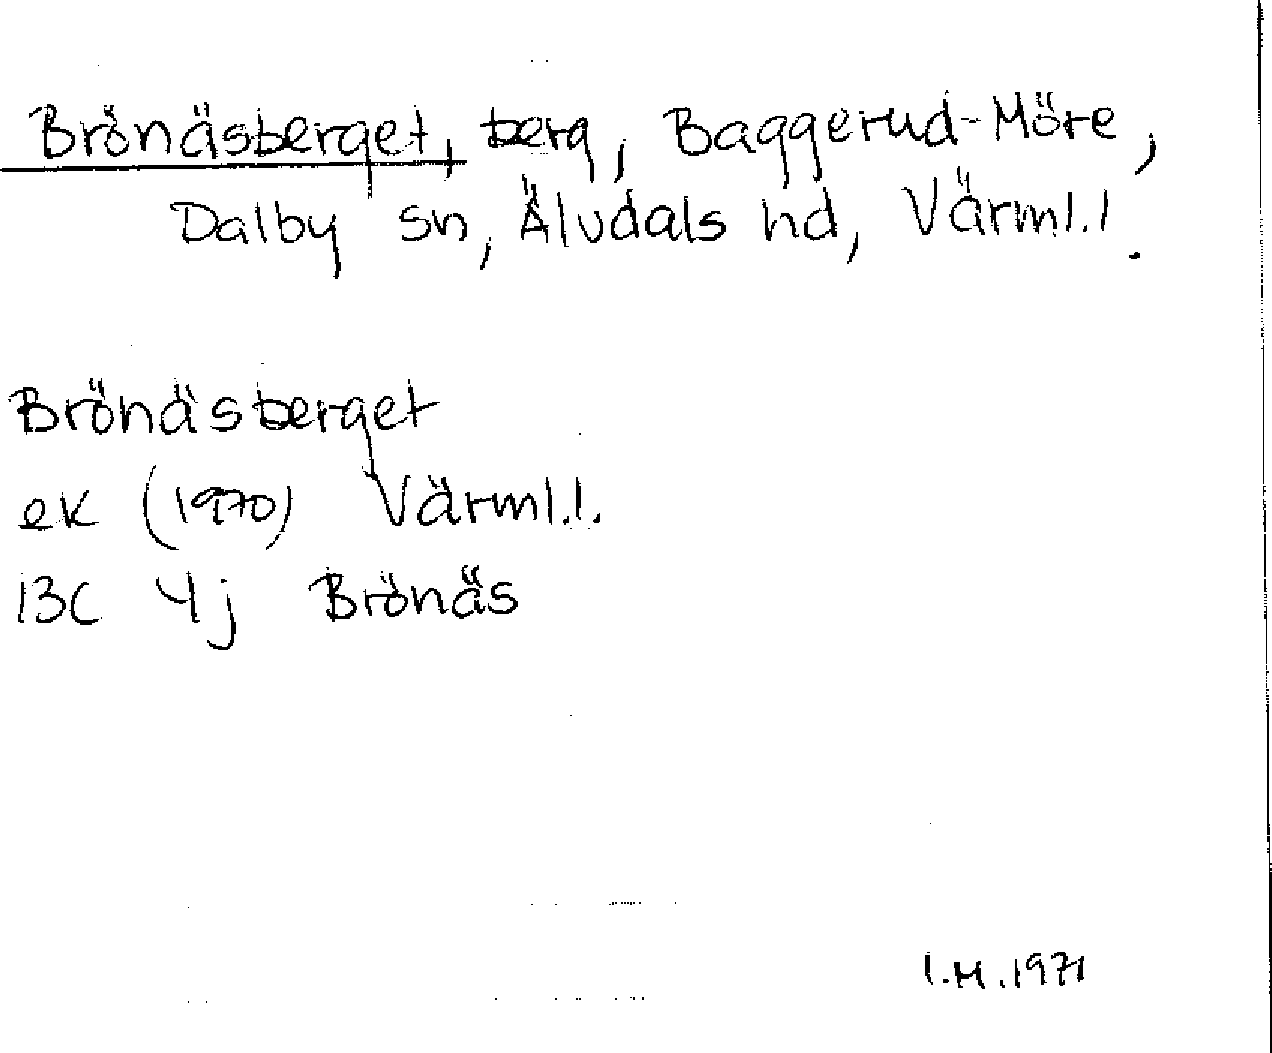 Brönäsberget, berg, Baggerud-Möre,
Dalby sn, Älvdals hd, Värml.l.
Brönäsberget
ek (1970) Värml.l.
13C 4j Brönäs
I.M.1971